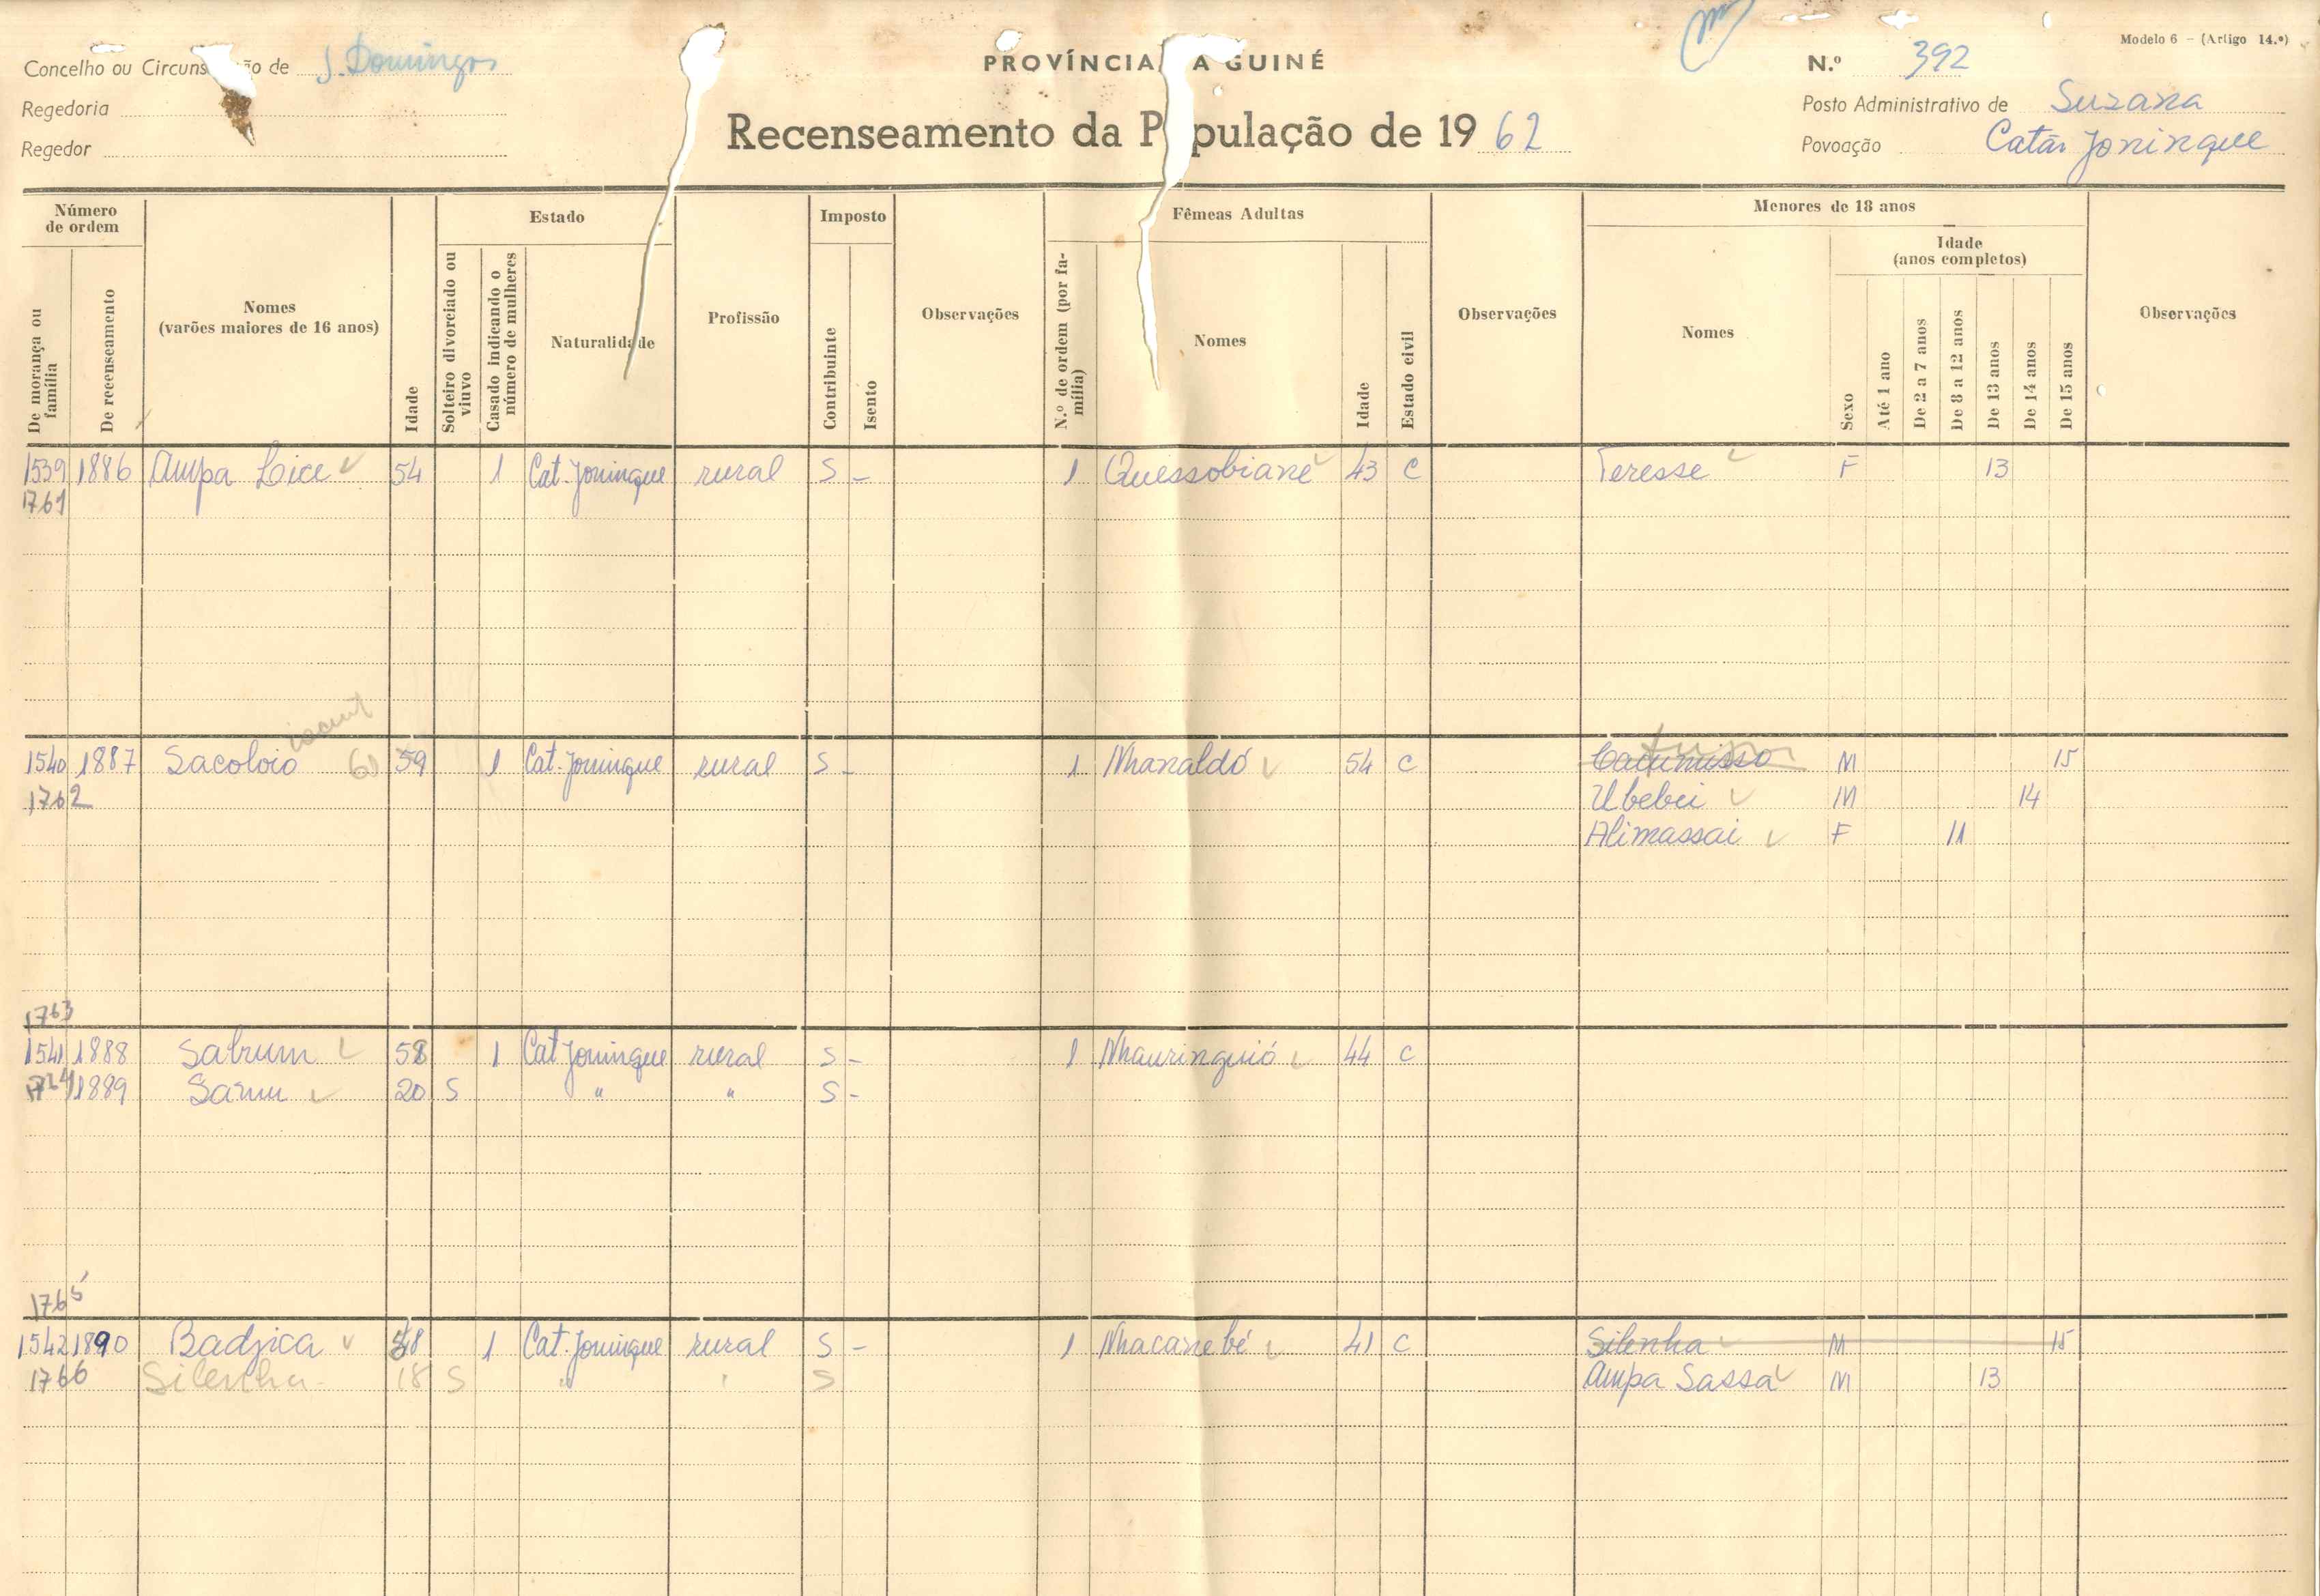 Modelo 6 – (Artigo 14.º)
Concelho ou Circuns ão de S. Domingos
PROVÍNCIA A GUINÉ
N.º 392
Regedoria
Recenseamento da P pulação de 1962
Posto Administrativo de Suzana
Regedor
Povoação Catão Joninque
Número de ordem
Estado
Imposto
Fêmeas Adultas
Menores de 18 anos
Idade (anos completos)
De morança ou família
De recenseamento
Nomes (varões maiores de 16 anos)
Idade
Solteiro divorciado ou viuvo
Casado indicando o número de mulheres
Naturalidade
Profissão
Contribuinte
Isento
Observações
N.º de ordem (por família)
Nomes
Idade
Estado civil
Observações
Nomes
Sexo
Até 1 ano
De 2 a 7 anos
De 8 a 12 anos
De 13 anos
De 14 anos
De 15 anos
Observações
1539 1886 Ampa Lice 54 1 Cat. Joninque rural S - 1 Quessobiané 43 C Teresse F 13
1761
1540 1887 Sacoloio 61 59 1 Cat. Joninque rural S - 1 Nhanaldó 54 C M 15
1762 Ubebei M 14
Alimassai F 11
1763
1541 1888 Sabrum 58 1 Cat Joninque rural S - 1 Nhauringuió 44 C
1889 Samu 20 S " " S -
1765
1542 1890 Badjica 1 Cat. Joninque rural S - 1 Nhacanebé 41 C Silenha M 15
1766 Silenha 18 S " " S Ampa Sassa M 13